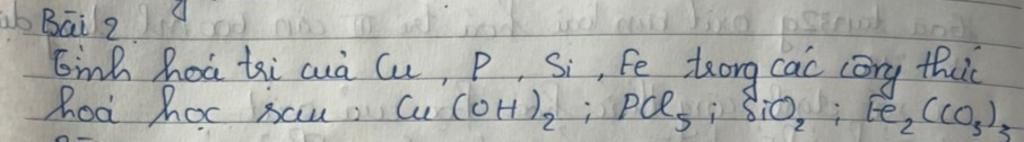 Bài 2
Tính hoá trị của Cu, P, Si, Fe trong các công thức
hoá học sau: Cu(OH)₂; PCl₅; SiO₂; Fe₂(CO₃)₃